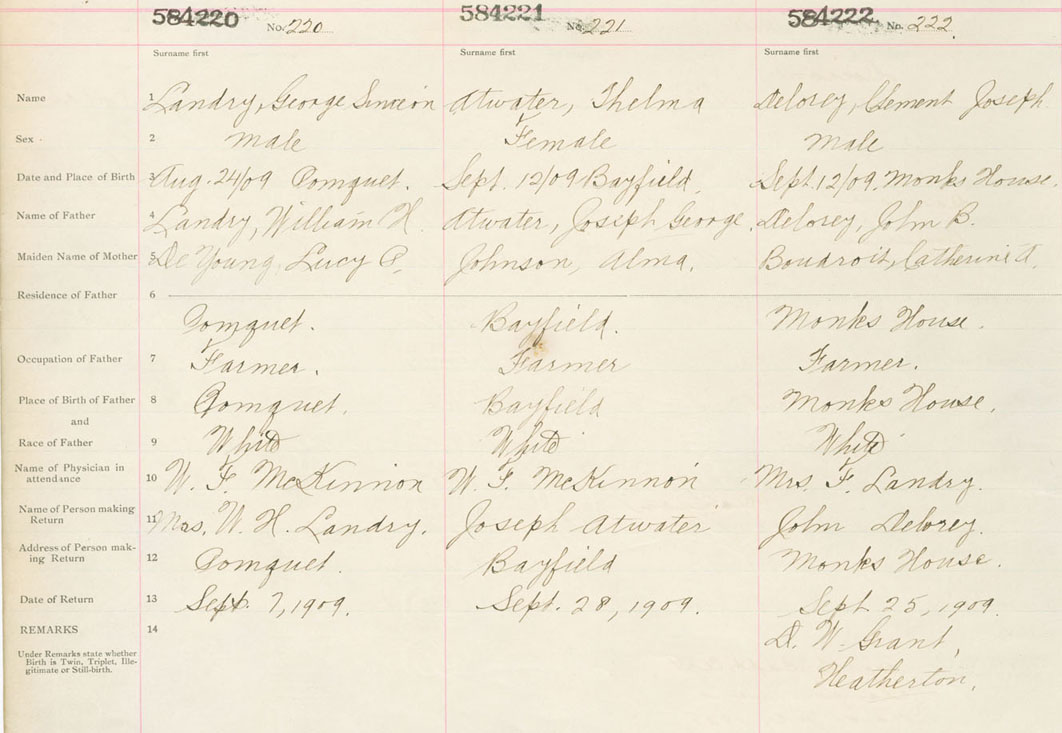 584220 No. 220 584221 No. 221 584222 No. 222.
Surname first Surname first Surname first
Name 1 Landry, George Simeon Atwater, Thelma Delorey, Clement Joseph
Sex 2 Male Female Male
Date and Place of Birth 3 Aug. 24/09 Pomquet. Sept. 12/09 Bayfield. Sept. 12/09. Monks House.
Name of Father 4 Landry, William H. Atwater, Joseph George. Delorey, John B.
Maiden Name of Mother 5 De Young, Lucy P. Johnson, Alma. Boudroit, Catherine A.
Residence of Father 6
Pomquet. Bayfield. Monks House.
Occupation of Father 7 Farmer. Farmer Farmer.
Place of Birth of Father 8 Pomquet. Bayfield Monks House.
and
Race of Father 9 White White White
Name of Physician in
attendance 10 W. F. McKinnon W. F. McKinnon Mrs. F. Landry.
Name of Person making
Return 11 Mrs. W. H. Landry. Joseph Atwater John Delorey.
Address of Person mak-
ing Return 12 Pomquet. Bayfield Monks House.
Date of Return 13 Sept. 7, 1909. Sept. 28, 1909. Sept 25, 1909.
REMARKS 14 D. W. Grant,
Under Remarks state whether
Birth is Twin, Triplet, Ille-
gitimate or Still-birth.
Heatherton.